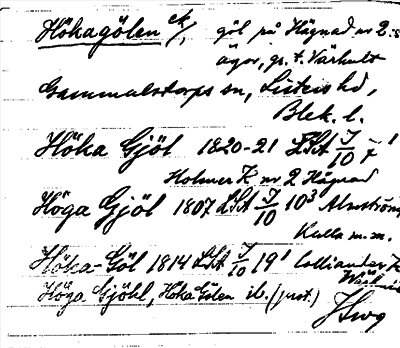 Hökagölen ek/, göl på Hägnad nr 2:s
ägor, gr. t. Värhult
Gammalstorps sn, Listers hd,
Blek. l.
Höka Gjöl 1820-21 LSA J/10 7¹
Holmer K nr 2 Hägnad
Höga Gjöl 1807 LSA J/10 10³ Almström
Kulla m.m.
Höka-Göl 1814 LSA J/10 19¹ Colliander K
Höga Gjöhl, Höka Gölen ib. (prot.)